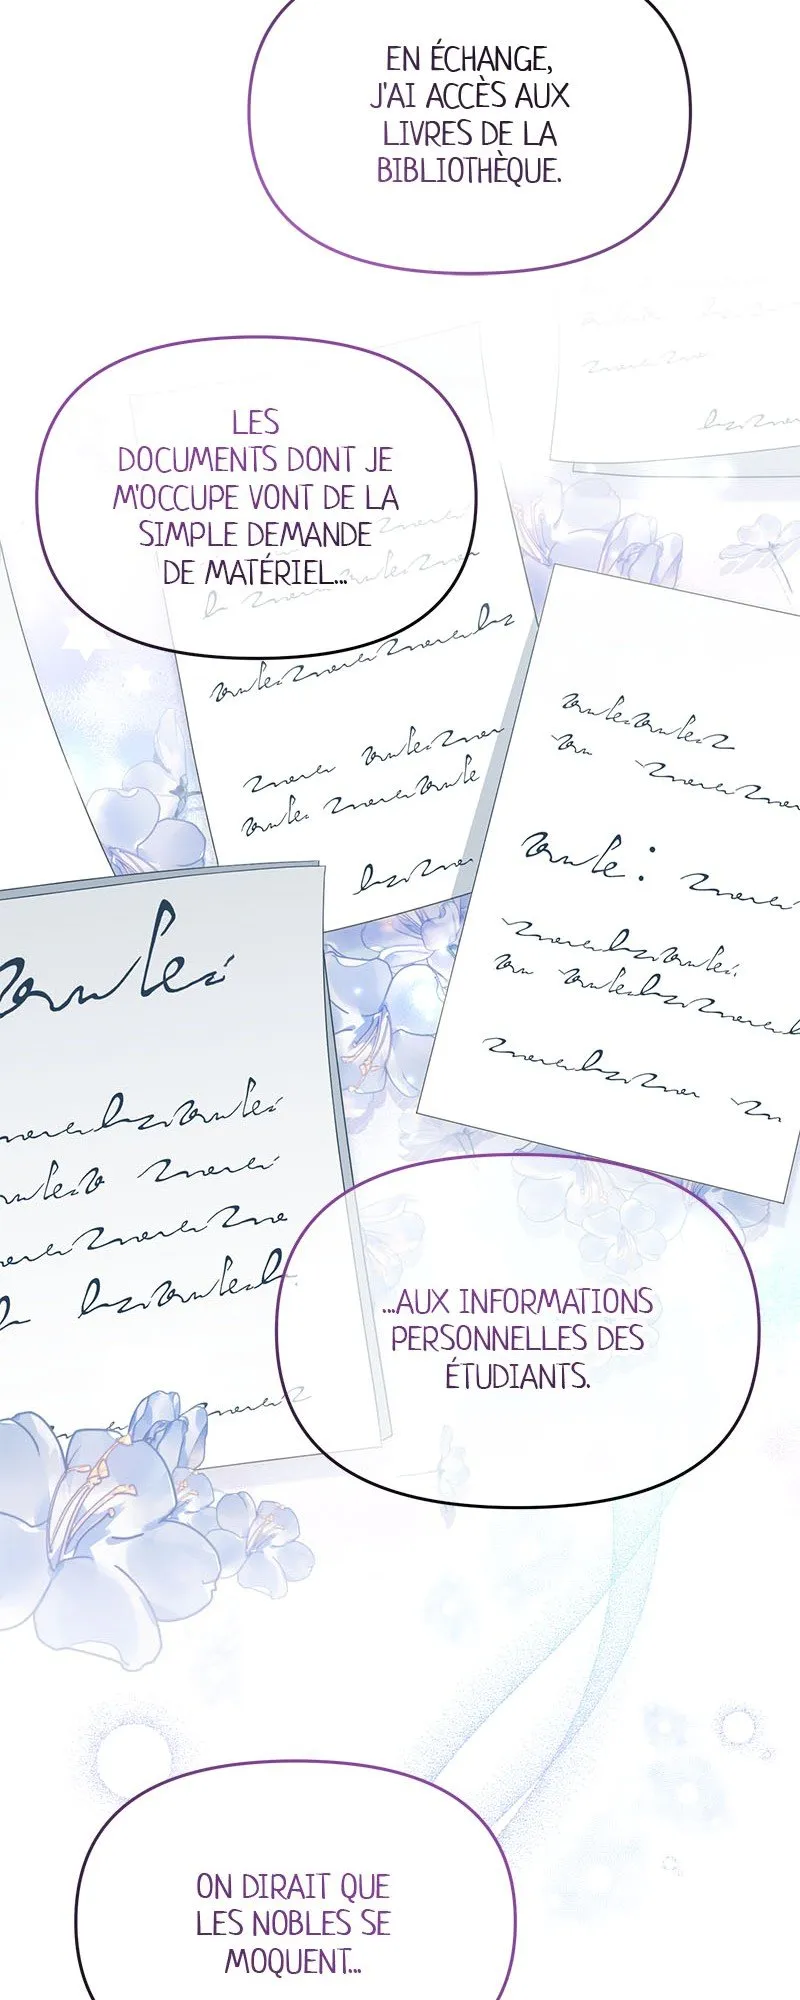 EN ÉCHANGE,
J'AI ACCÈS AUX
LIVRES DE LA
BIBLIOTHÈQUE.
LES
DOCUMENTS DONT JE
M'OCCUPE VONT DE LA
SIMPLE DEMANDE
DE MATÉRIEL...
...AUX INFORMATIONS
PERSONNELLES DES
ÉTUDIANTS.
ON DIRAIT QUE
LES NOBLES SE
MOQUENT...